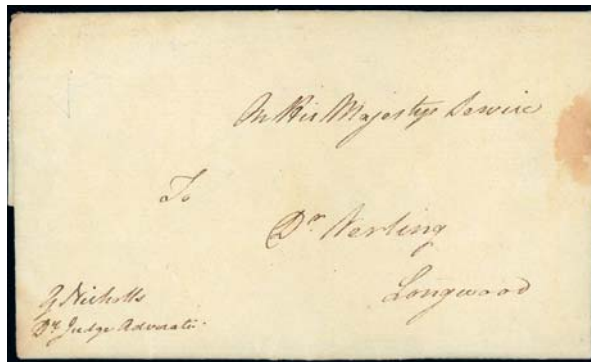 On His Majestys Service
To
Dr Verling
Longwood
G Nicholls
Dy Judge Advocate